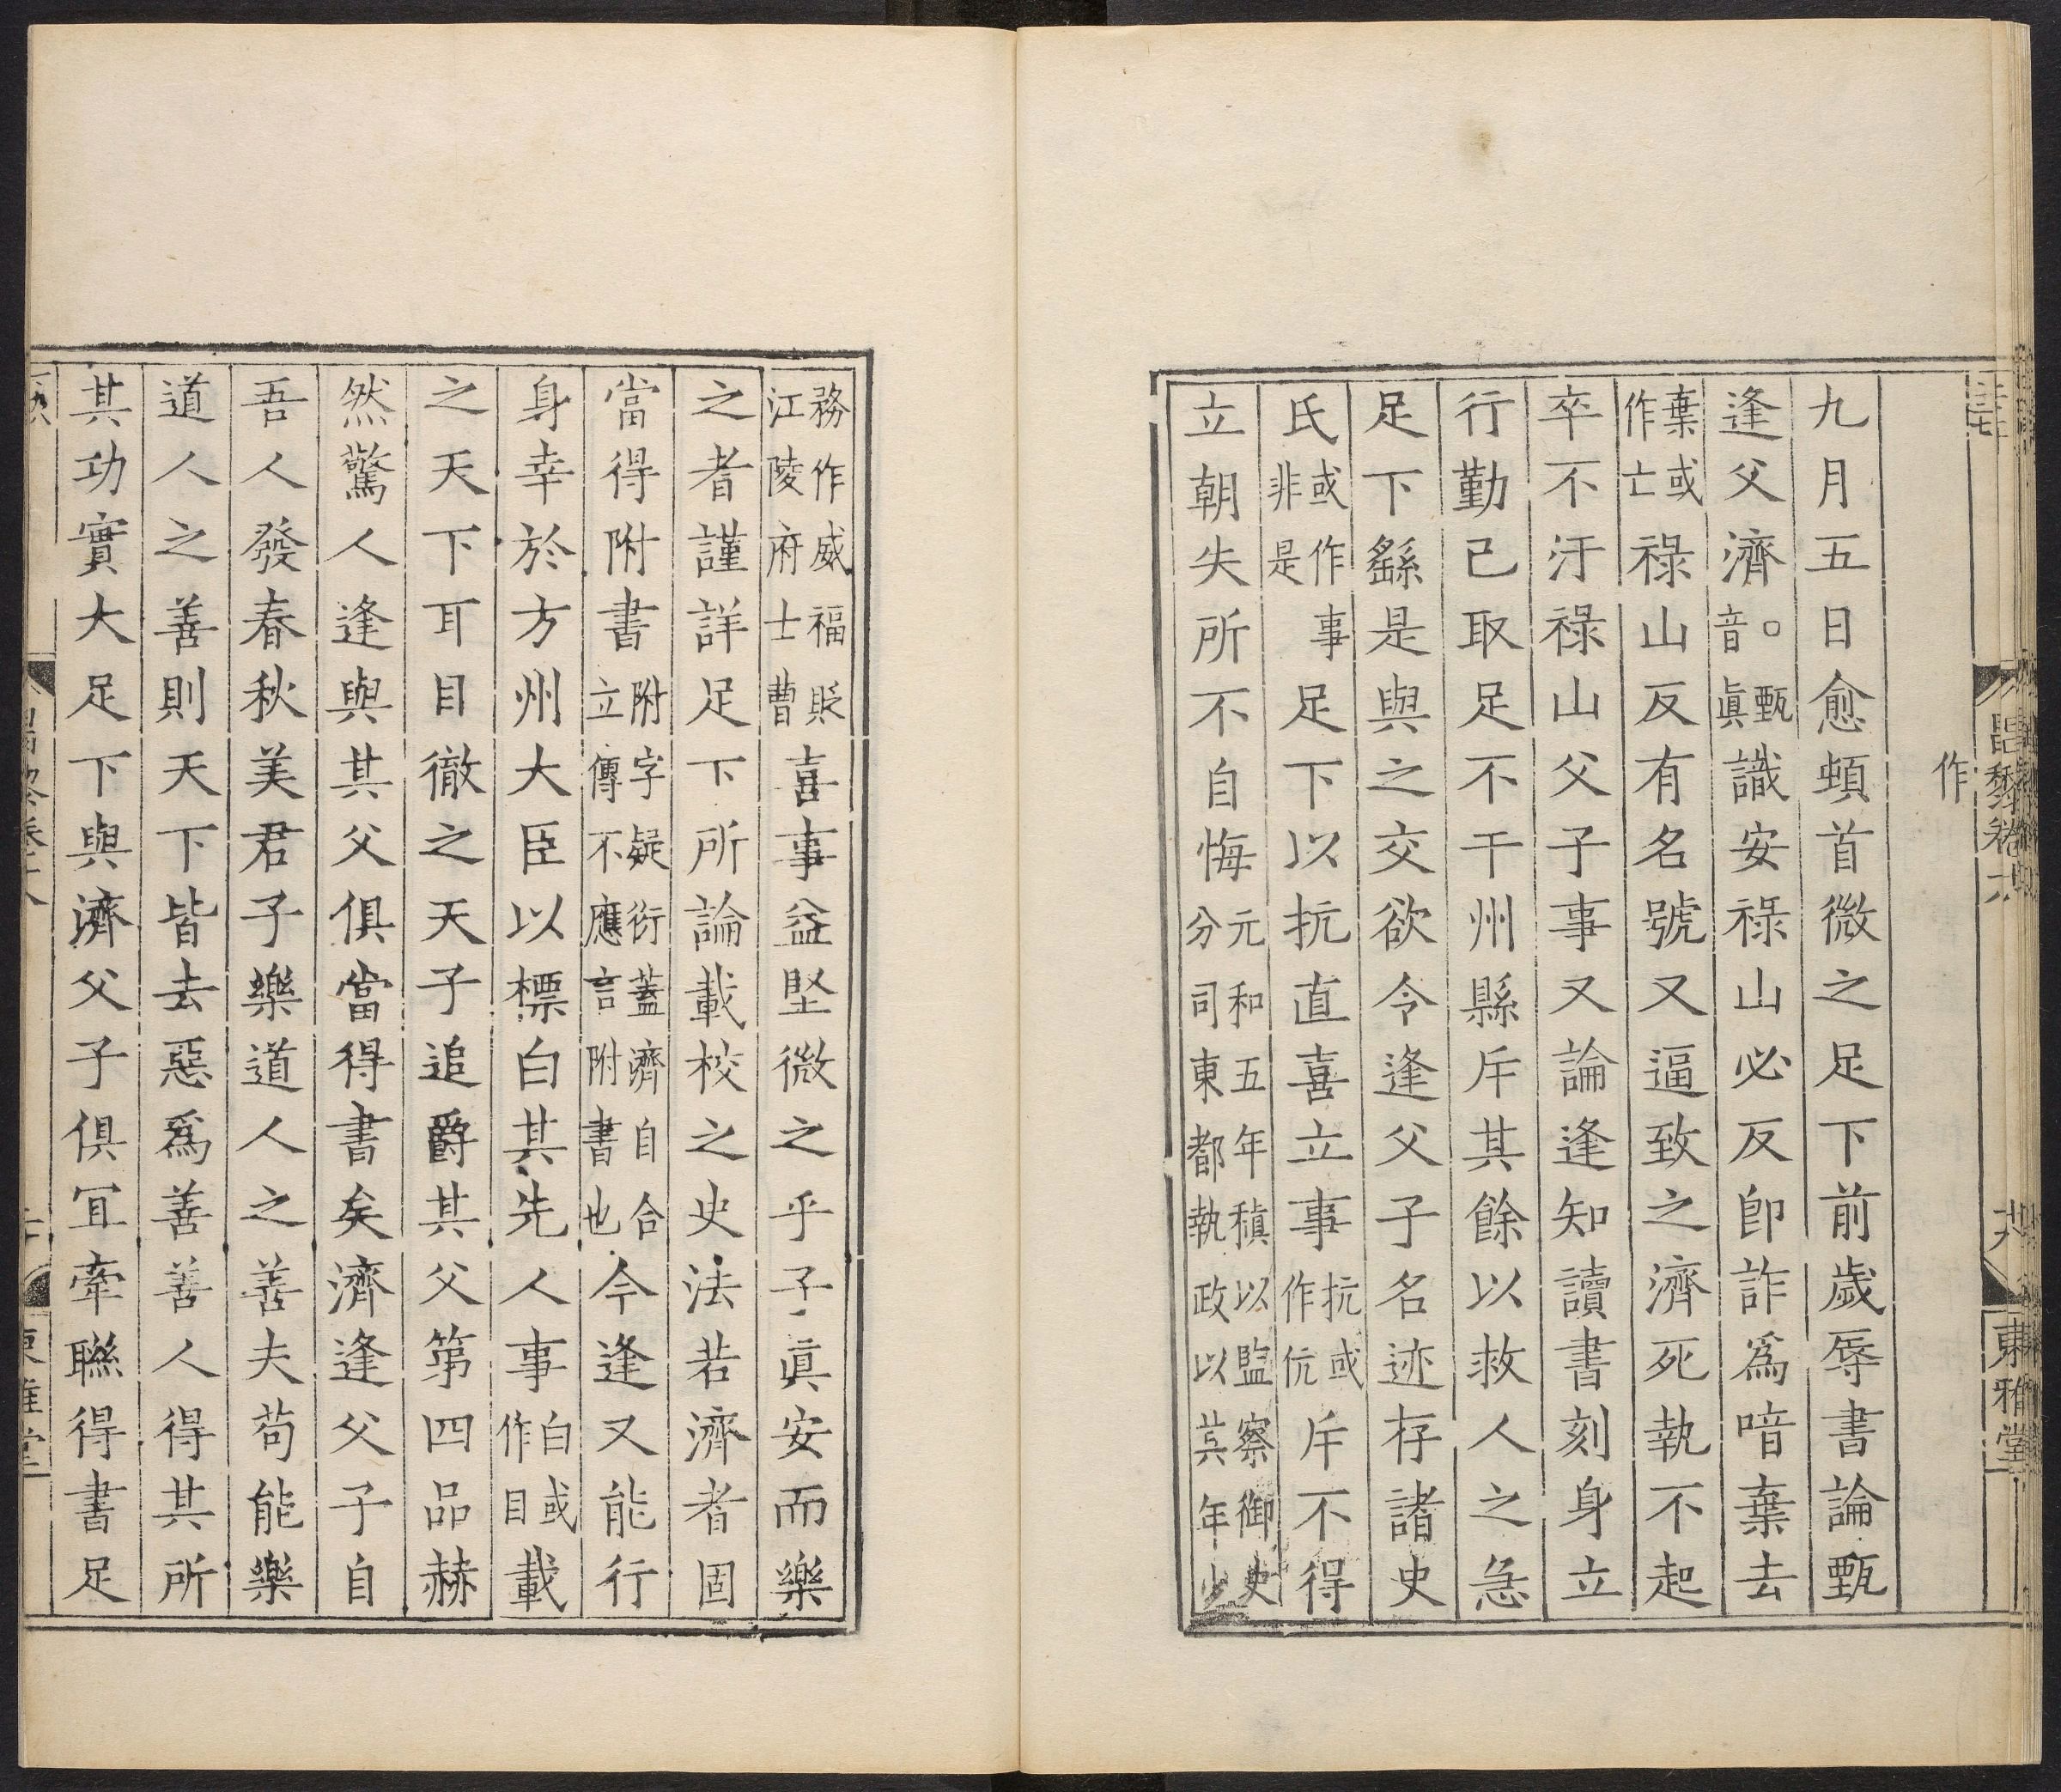 作
九月五日愈頓首微之足下前歲辱書論甄
逢父濟○甄音眞識安祿山必反卽詐爲喑棄去
棄或作亡祿山反有名號又逼致之濟死執不起
卒不汙祿山父子事又論逢知讀書刻身立
行勤己取足不干州縣斥其餘以救人之急
足下繇是與之交欲令逢父子名迹存諸史
氏或作非是事足下以抗直喜立事抗或作伉斥不得
立朝失所不自悔元和五年稹以監察御史分司東都執政以其年少
務作威福貶江陵府士曹喜事益堅微之乎子眞安而樂
之者謹詳足下所論載校之史法若濟者固
當得附書附字疑衍蓋濟自合立傳不應言附書也今逢又能行
身幸於方州大臣以標白其先人事白或作目載
之天下耳目徹之天子追爵其父第四品赫
然驚人逢與其父俱當得書矣濟逢父子自
吾人發春秋美君子樂道人之善夫苟能樂
道人之善則天下皆去惡爲善善人得其所
其功實大足下與濟父子俱宜牽聯得書足
東雅堂